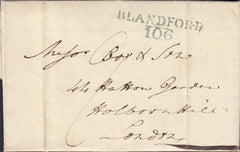 BLANDFORD
106
Messrs Cox & Son
44 Hatton Garden
Holborn Hill
London